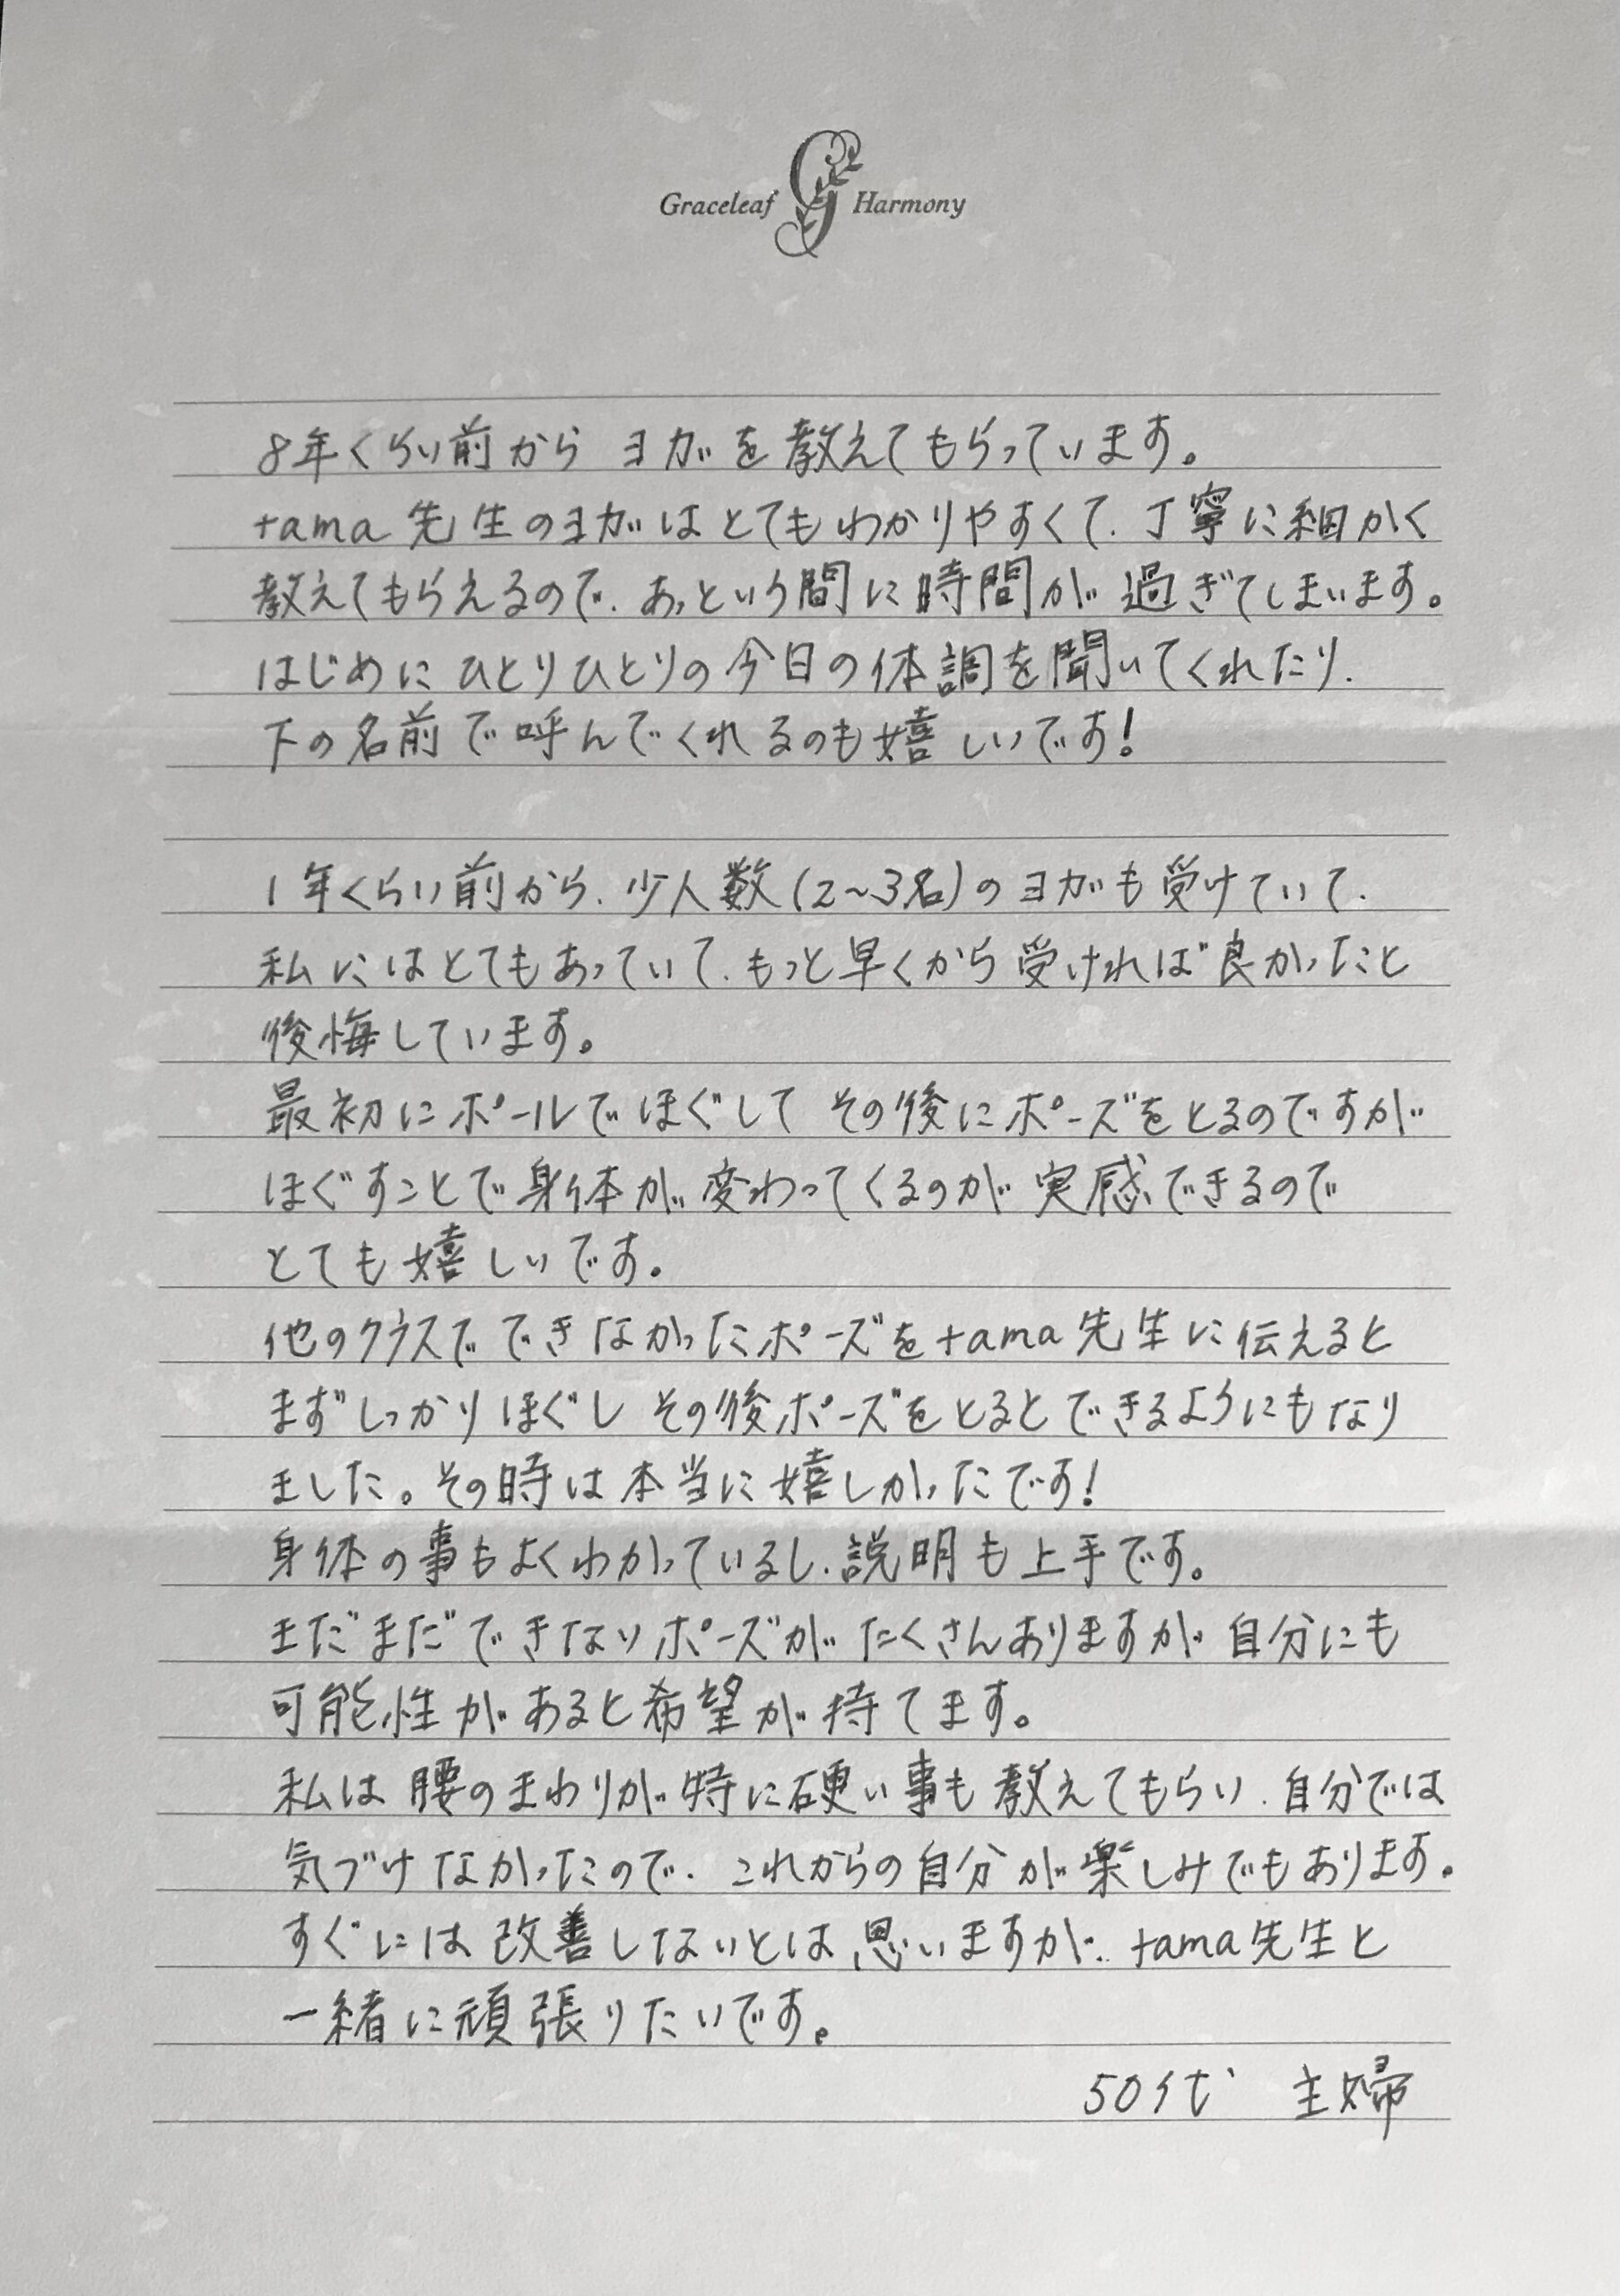 Graceleaf Harmony
8年くらい前から ヨガを教えてもらっています。
tama先生のヨガはとてもわかりやすくて、丁寧に細かく
教えてもらえるので、あっという間に時間が過ぎてしまいます。
はじめにひとりひとりの今日の体調を聞いてくれたり、
下の名前で呼んでくれるのも嬉しいです!
1年くらい前から、少人数(2〜3名)のヨガも受けていて、
私にはとてもあっていて、もっと早くから受ければ良かったこと
後悔しています。
最初にポールでほぐして その後にポーズをとるのですが
ほぐすことで身体が変わってくるのが実感できるので
とても嬉しいです。
他のクラスでできなかったポーズをtama先生に伝えると
まずしっかりほぐし その後ポーズをとるとできるようにもなり
ました。その時は本当に嬉しかったです!
身体の事もよくわかっているし、説明も上手です。
まだまだできないポーズがたくさんありますが 自分にも
可能性があると希望が持てます。
私は腰のまわりが特に硬い事も教えてもらい、自分では
気づけなかったので、これからの自分が楽しみでもあります。
すぐには改善しないとは思いますが、tama先生と
一緒に頑張りたいです。
50代 主婦